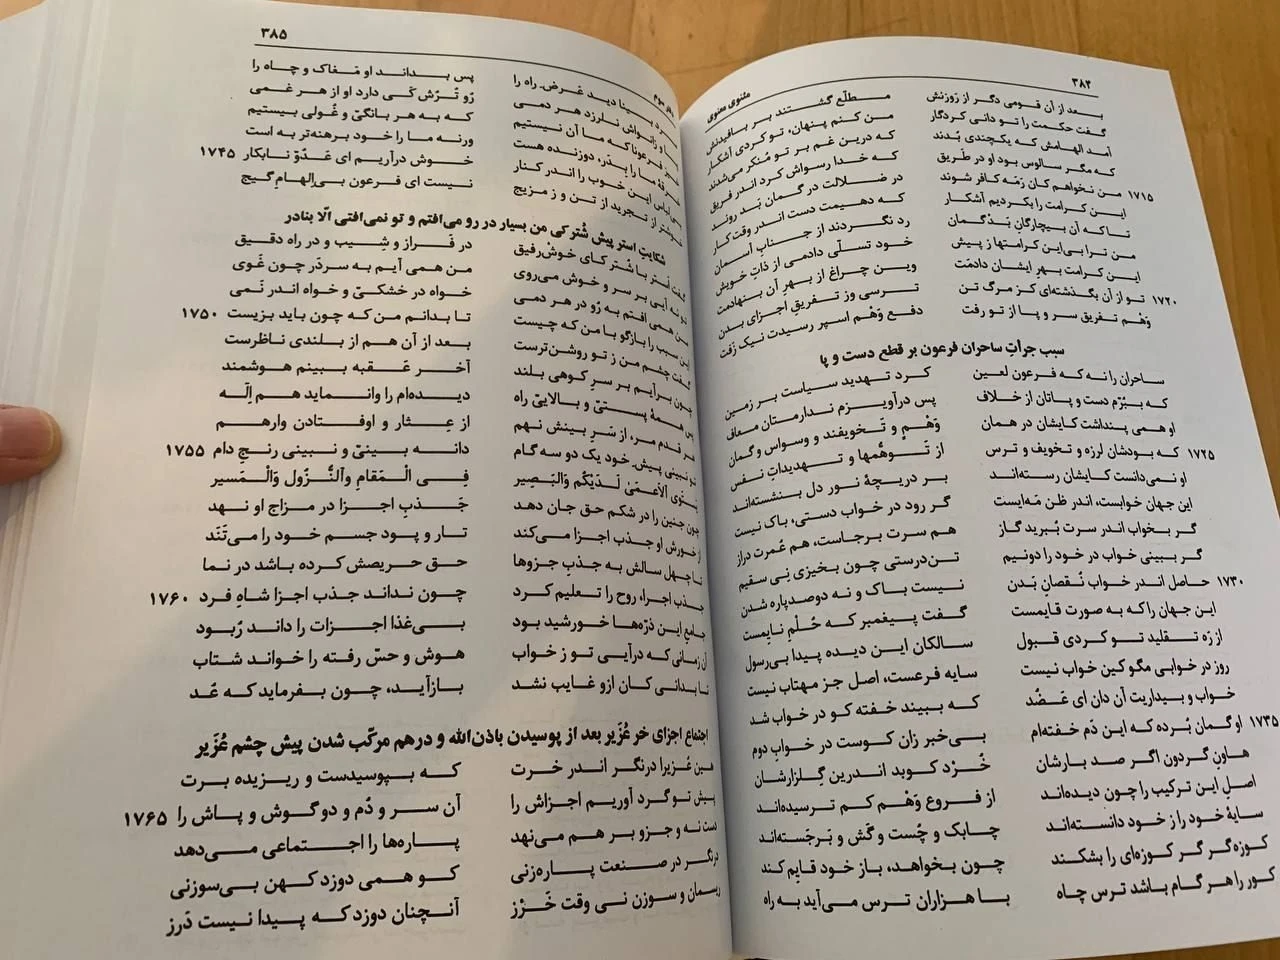 ۳۸۴ مثنوی معنوی
بعد از آن قومی دگر از رَوْزنش مـطـلّع گـشـتـند بـر بـافیدنش
گفت حکمت را تو دانی کردگار من کنم پنهان، تو کردی آشکار
آمد الهامش که یکچندی بُدند که درین غم بر تو مُنکر می‌شدند
که مگر سالوس بود او در طَریق که خدا رسواش کرد اندر فریق
۱۷۱۵ من نخواهم کان رَمَه کافر شوند در ضلالت در گمان بَد روند
ایـن کـرامت را بکردیم آشکار که دهیمت دست اندر وقت کار
تـا که آن بیچارگانِ بَدْگمان رد نگردند از جنابِ آسمان
من ترا بی‌این کرامتها ز پیش خود تسلّی دادمی از ذاتِ خویش
این کرامت بهرِ ایشان دادمَت وین چراغ از بهرِ آن بنهادمت
۱۷۲۰ تو از آن بگذشته‌ای کز مرگ تن ترسی وز تفریقِ اجزای بدن
وَهْم تفریق سر و پا از تو رفت دفع وَهْم اسپر رسیدت نیک زَفت
سبب جرأتِ ساحران فرعون بر قطع دست و پا
ساحران را نه که فرعون لعین کـرد تـهدید سـیاست بـر زمین
که بِبُرّم دست و پاتان از خلاف پس درآویزم ندارمتان معاف
او همی پنداشت کایشان در همان وَهْم و تَخویفند و وسواس و گمان
۱۷۲۵ که بودشان لرزه و تخویف و ترس از تَوهُّمها و تهدیداتِ نَفْس
او نمی‌دانست کایشان رسته‌اند بر دریچهٔ نور دل بنشسته‌اند
این جهان خوابست، اندر ظن مه‌ایست گر رود در خواب دستی، باک نیست
گر بخواب اندر سرت بُبرید گاز هم سرت برجاست، هم عُمرت دراز
گر ببینی خواب در خود را دونیم تن‌درستی چون بخیزی نی سقیم
۱۷۳۰ حاصل اندر خواب نُقصانِ بَدن نیست باک و نه دوصدپاره شدن
این جهان را که به صورت قایمست گفت پیغمبر که حُلْمِ نایمست
از رَه تـقلید تـو کردی قبول سالکان این دیده پیدا بی‌رسول
روز در خوابی مگو کین خواب نیست سایه فرعست، اصل جز مهتاب نیست
خواب و بیداریت آن دان ای عَضُد که ببیند خفته کو در خواب شد
۱۷۳۵ او گمان بُرده که این دَم خفته‌ام بی‌خبر زان کوست در خوابِ دوم
هاونِ گردون اگر صد بارشان خُرْد کوبد اندرین گِلزارشان
اصلِ این ترکیب را چون دیده‌اند از فروع وَهْم کم ترسیده‌اند
سایهٔ خود را ز خود دانسته‌اند چابک و چُست و گَش و بَرجَسته‌اند
کوزه‌گر گر کوزه‌ای را بشکند چون بخواهد، باز خود قایم کند
کور را هر گام باشد ترسِ چاه بـا هـزاران تـرس می‌آید به راه
۳۸۵ سوم
دید عَرض راه را پس بـدانـد او مَـغاک و چاه را
و زانواش نلرزد هر دمی رُو تُرُش کَی دارد او از هر غمی
فرعونا که ما آن نیستیم که به هر بانگیّ و غُولی بیستیم
ما را بدَر، دوزنده هست ورنه ما را خود برهنه‌تر به است
لباس این خوب را اندر کنار خوش درآریم ای عَدُوّ نابکار ۱۷۴۵
از تجرید از تن و ز مزیج نیست ای فرعون بی‌اِلهامِ گیج
شکایتِ استر پیشِ شُتر کی من بسیار در رو می‌افتم و تو نمی‌افتی اِلّا بنادر
گفت اُستر با شُتر کای خوشْ‌رفیق در فَراز و شِیب و در راه دقیق
تو نه‌آیی بر سر و خوش می‌روی من همی آیم به سردَر چون غَوی
من همی افتم به رُو در هر دمی خواه در خشکیّ و خواه اندر نَمی
این سبب را بازگو با من که چیست تا بدانم من که چون باید بزیست ۱۷۵۰
گفت چشم من ز تو روشن‌ترست بعد از آن هم از بلندی ناظرست
چون برآیم بر سرِ کوهی بلند آخر عَقَبه ببینم هوشمند
پس همهٔ پستیّ و بالاییّ راه دیـده‌ام را وانـماید هم اِلٰه
هر قدم من از سَرِ بینش نهم از عِثار و اوفـتادن وارهم
تو نبینی پیش خود یک دو سه گام دانه بینیّ و نبینی رنجِ دام ۱۷۵۵
یَستَوی اَلاَعمیٰ لَدَیْکُم وَالبَصیر فِی الْمَقامِ وَالنُّزول وَالْمَسیر
چون جنین را در شکم حق جان دهد جَذبِ اجزا در مزاج او نهد
از خورش او جذب اجزا می‌کند تار و پود جسم خود را می‌تَنَد
تا چهل سالش به جذبِ جزوها حق حریصش کرده باشد در نما
جذب اجزا، روح را تعلیم کرد چون نداند جذب اجزا شاهِ فرد ۱۷۶۰
جامعِ این ذرّه‌ها خورشید بود بی‌غذا اجزات را داند رُبود
آن زمانی که درآیی تو ز خواب هوش و حسّ رفته را خواند شتاب
تا بدانی کان ازو غایب نشد بازآید، چون بفرماید که عُد
اجتماع اجزای خر عُزَیر بعد از پوسیدن باذن‌الله و درهم مرکّب شدن پیش چشم عُزَیر
هین عُزیرا درنگر اندر خرت که بپوسیدست و ریزیده برت
پیش تو گرد آوریم اجزاش را آن سر و دُم و دو گوش و پاش را ۱۷۶۵
دست نه و جزو بر هم می‌نهد پـاره‌ها را اجـتماعی می‌دهد
درنگر در صنعت پاره‌زنی کو همی دوزد کهن بی‌سوزنی
ریسمان و سوزن نی وقت خَرْز آنچنان دوزد که پیدا نیست دَرز